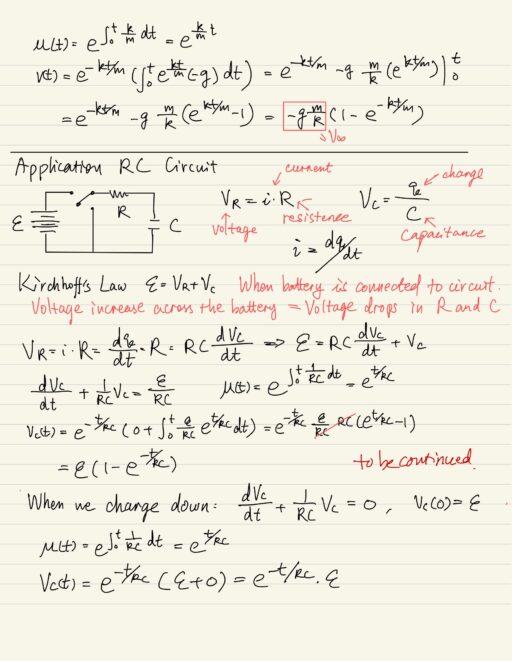 μ(t) = e^{∫_0^t k/m dt} = e^{k/m t}
v(t) = e^{-kt/m} (∫_0^t e^{kt/m} (-g) dt) = e^{-kt/m} -g m/k (e^{kt/m}) |_0^t
= e^{-kt/m} -g m/k (e^{kt/m} -1) = -g m/k (1 - e^{-kt/m})
V∞
Application RC Circuit
current
change
V_R = i · R
V_C = q/C
voltage
resistence
Capacitance
ℰ
R
C
i = dq/dt
Kirchhoff's Law ℰ = V_R + V_C When battery is connected to circuit.
Voltage increase across the battery = Voltage drops in R and C
V_R = i · R = dq/dt · R = RC dV_C/dt => ℰ = RC dV_C/dt + V_C
dV_C/dt + 1/RC V_C = ℰ/RC μ(t) = e^{∫_0^t 1/RC dt} = e^{t/RC}
V_C(t) = e^{-t/RC} (0 + ∫_0^t ℰ/RC e^{t/RC} dt) = e^{-t/RC} ℰ/RC RC (e^{t/RC} -1)
= ℰ (1 - e^{-t/RC})
to be continued.
When we change down: dV_C/dt + 1/RC V_C = 0, V_C(0) = ℰ
μ(t) = e^{∫_0^t 1/RC dt} = e^{t/RC}
V_C(t) = e^{-t/RC} (ℰ + 0) = e^{-t/RC} · ℰ